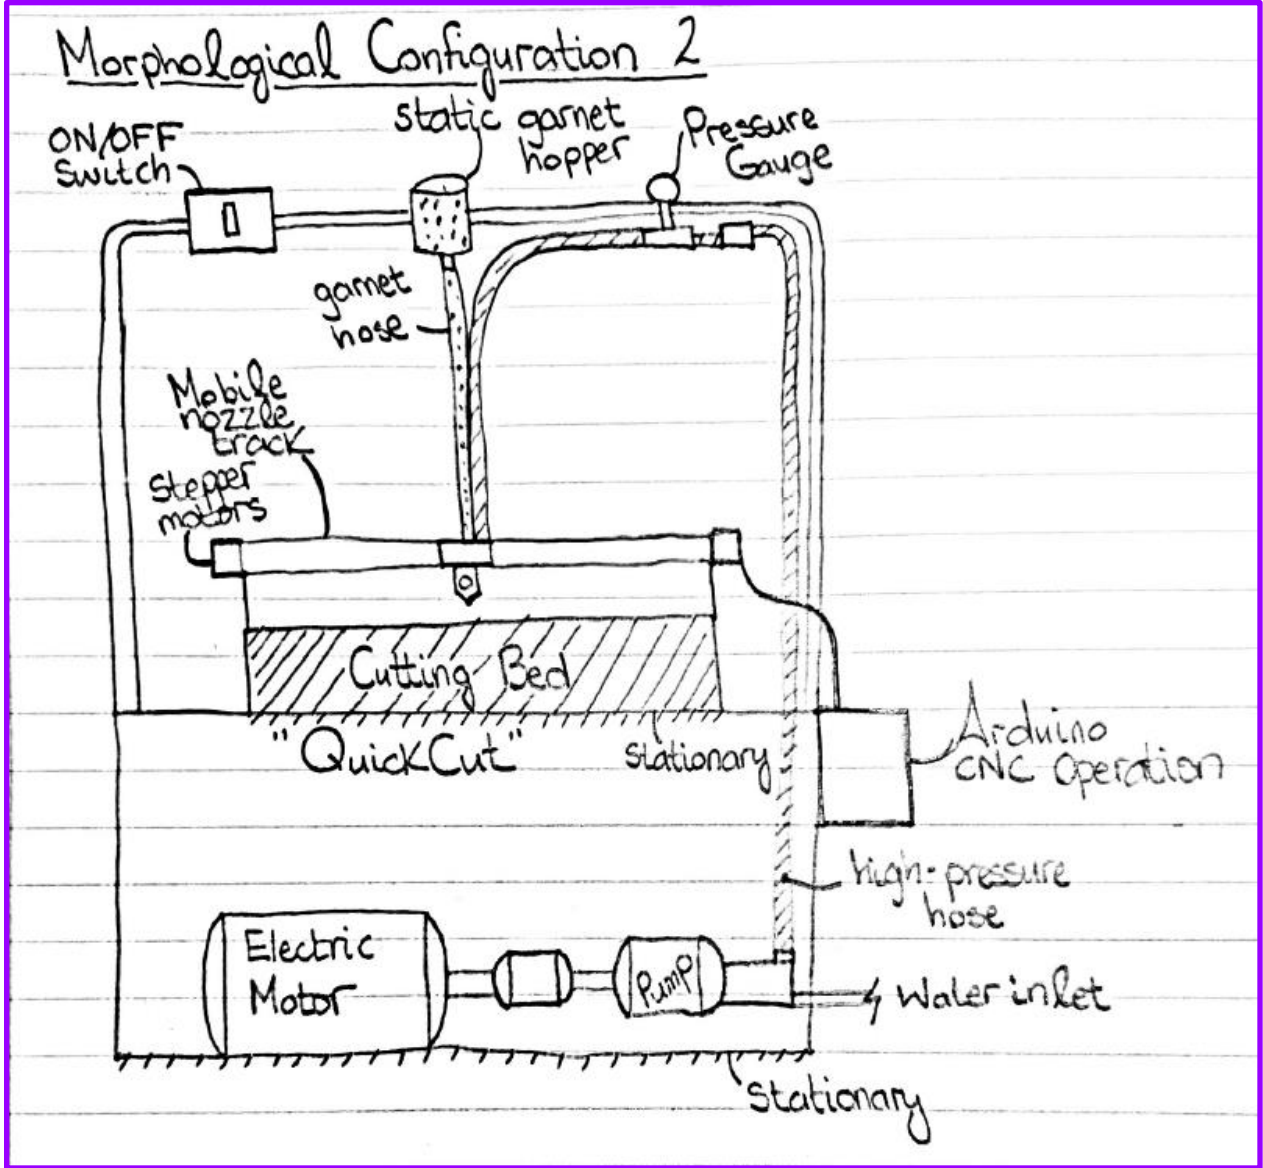 Morphological Configuration 2
ON/OFF
Switch
static garnet
hopper
Pressure
Gauge
garnet
hose
Mobile
nozzle
track
Stepper
motors
Cutting Bed
"QuickCut"
stationary
Arduino
CNC Operation
high-pressure
hose
Electric
Motor
Pump
Water inlet
Stationary